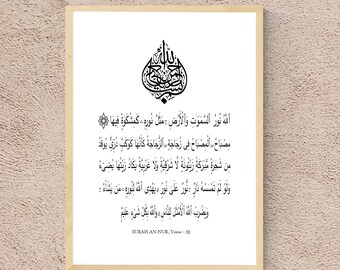 بسم الله الرحمن الرحيم
۞ ٱللَّهُ نُورُ ٱلسَّمَٰوَٰتِ وَٱلْأَرْضِ ۚ مَثَلُ نُورِهِۦ كَمِشْكَوٰةٍ فِيهَا
مِصْبَاحٌ ۖ ٱلْمِصْبَاحُ فِى زُجَاجَةٍ ۖ ٱلزُّجَاجَةُ كَأَنَّهَا كَوْكَبٌ دُرِّىٌّ يُوقَدُ
مِن شَجَرَةٍ مُّبَٰرَكَةٍ زَيْتُونَةٍ لَّا شَرْقِيَّةٍ وَلَا غَرْبِيَّةٍ يَكَادُ زَيْتُهَا يُضِىٓءُ
وَلَوْ لَمْ تَمْسَسْهُ نَارٌ ۚ نُّورٌ عَلَىٰ نُورٍ ۗ يَهْدِى ٱللَّهُ لِنُورِهِۦ مَن يَشَآءُ ۚ
وَيَضْرِبُ ٱللَّهُ ٱلْأَمْثَٰلَ لِلنَّاسِ ۗ وَٱللَّهُ بِكُلِّ شَىْءٍ عَلِيمٌ
SURAH AN-NUR, Verse - 35